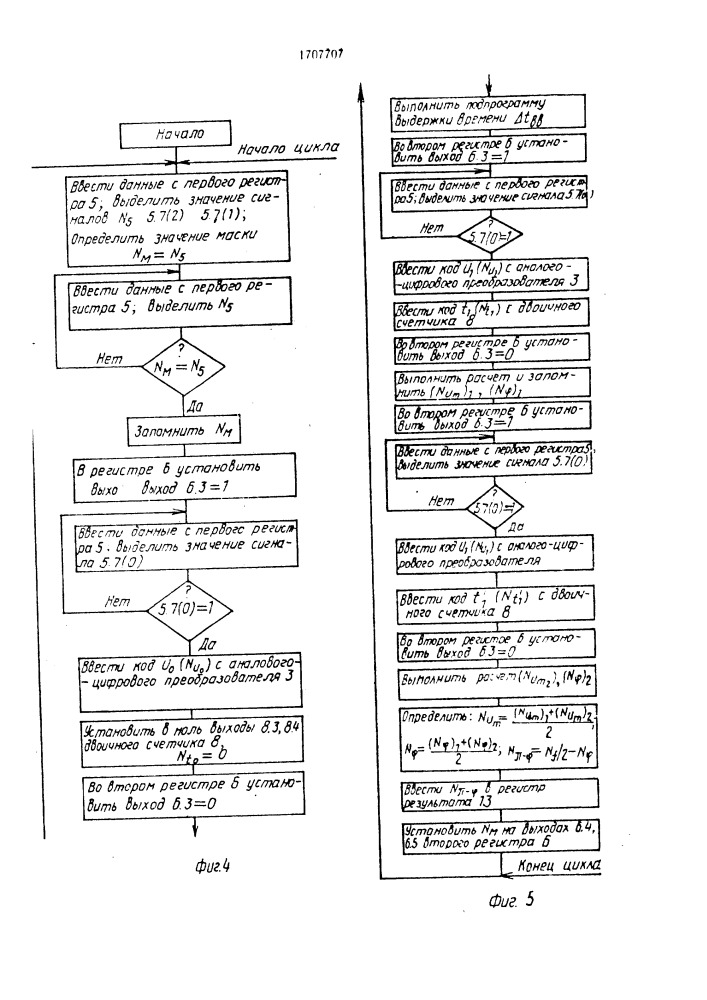 1707707
Начало
Начало цикла
Ввести данные с первого регист-
ра 5; выделить значение сиг-
налов N5 5.7(2) 5.7(1);
Определить значение маски
NМ = N5
Ввести данные с первого ре-
гистра 5; выделить N5
?
NМ = N5
Нет
Да
Запомнить NМ
В регистре 6 установить
выхо выход 6.3=1
Ввести данные с первого регист-
ра 5. выделить значение сигна-
ла 5.7(0)
?
5.7(0)=1
Нет
Да
Ввести код U0 (NU0) с аналового-
-цифрового преобразователя 3
Установить в ноль выходы 8.3, 8.4
двоичного счетчика 8,
Nt0 = 0
Во втором регистре 6 устано-
вить выход 6.3=0
Фиг.4
Выполнить подпрограмму
выдержки времени Δtвв
Во втором регистре 6 устано-
вить выход 6.3=1
Ввести данные с первого регист-
ра5; выделить значение сигнала 5.7(0)
?
5.7(0)=1
Нет
Ввести код U1 (NU1) с аналого-
-цифрового преобразователя 3
Ввести код t1 (Nt1) с двоичного
счетчика 8
Во втором регистре 6 устано-
вить выход 6.3=0
Выполнить расчет и запом-
нить (NUm)1, (Nφ)1
Во втором регистре 6 устано-
вить выход 6.3=1
Ввести данные с первого регистра5,
выделить значение сигнала 5.7(0)
?
5.7(0)=1
Нет
Да
Ввести код U1 (NU1) с аналого-циф-
рового преобразователя
Ввести код t'1 (Nt'1) с двоич-
ного счетчика 8
Во втором регистре 6 устано-
вить выход 6.3=0
Выполнить расчет (NUm2), (Nφ)2
Определить: NUm = ((NUm)1+(NUm)2)/2,
Nφ = ((Nφ)1+(Nφ)2)/2; Nπ-φ = Nf/2 - Nφ
Ввести Nπ-φ в регистр
результата 13
Установить NМ на выходах 6.4,
6.5 второго регистра 6
Конец цикла
Фиг. 5